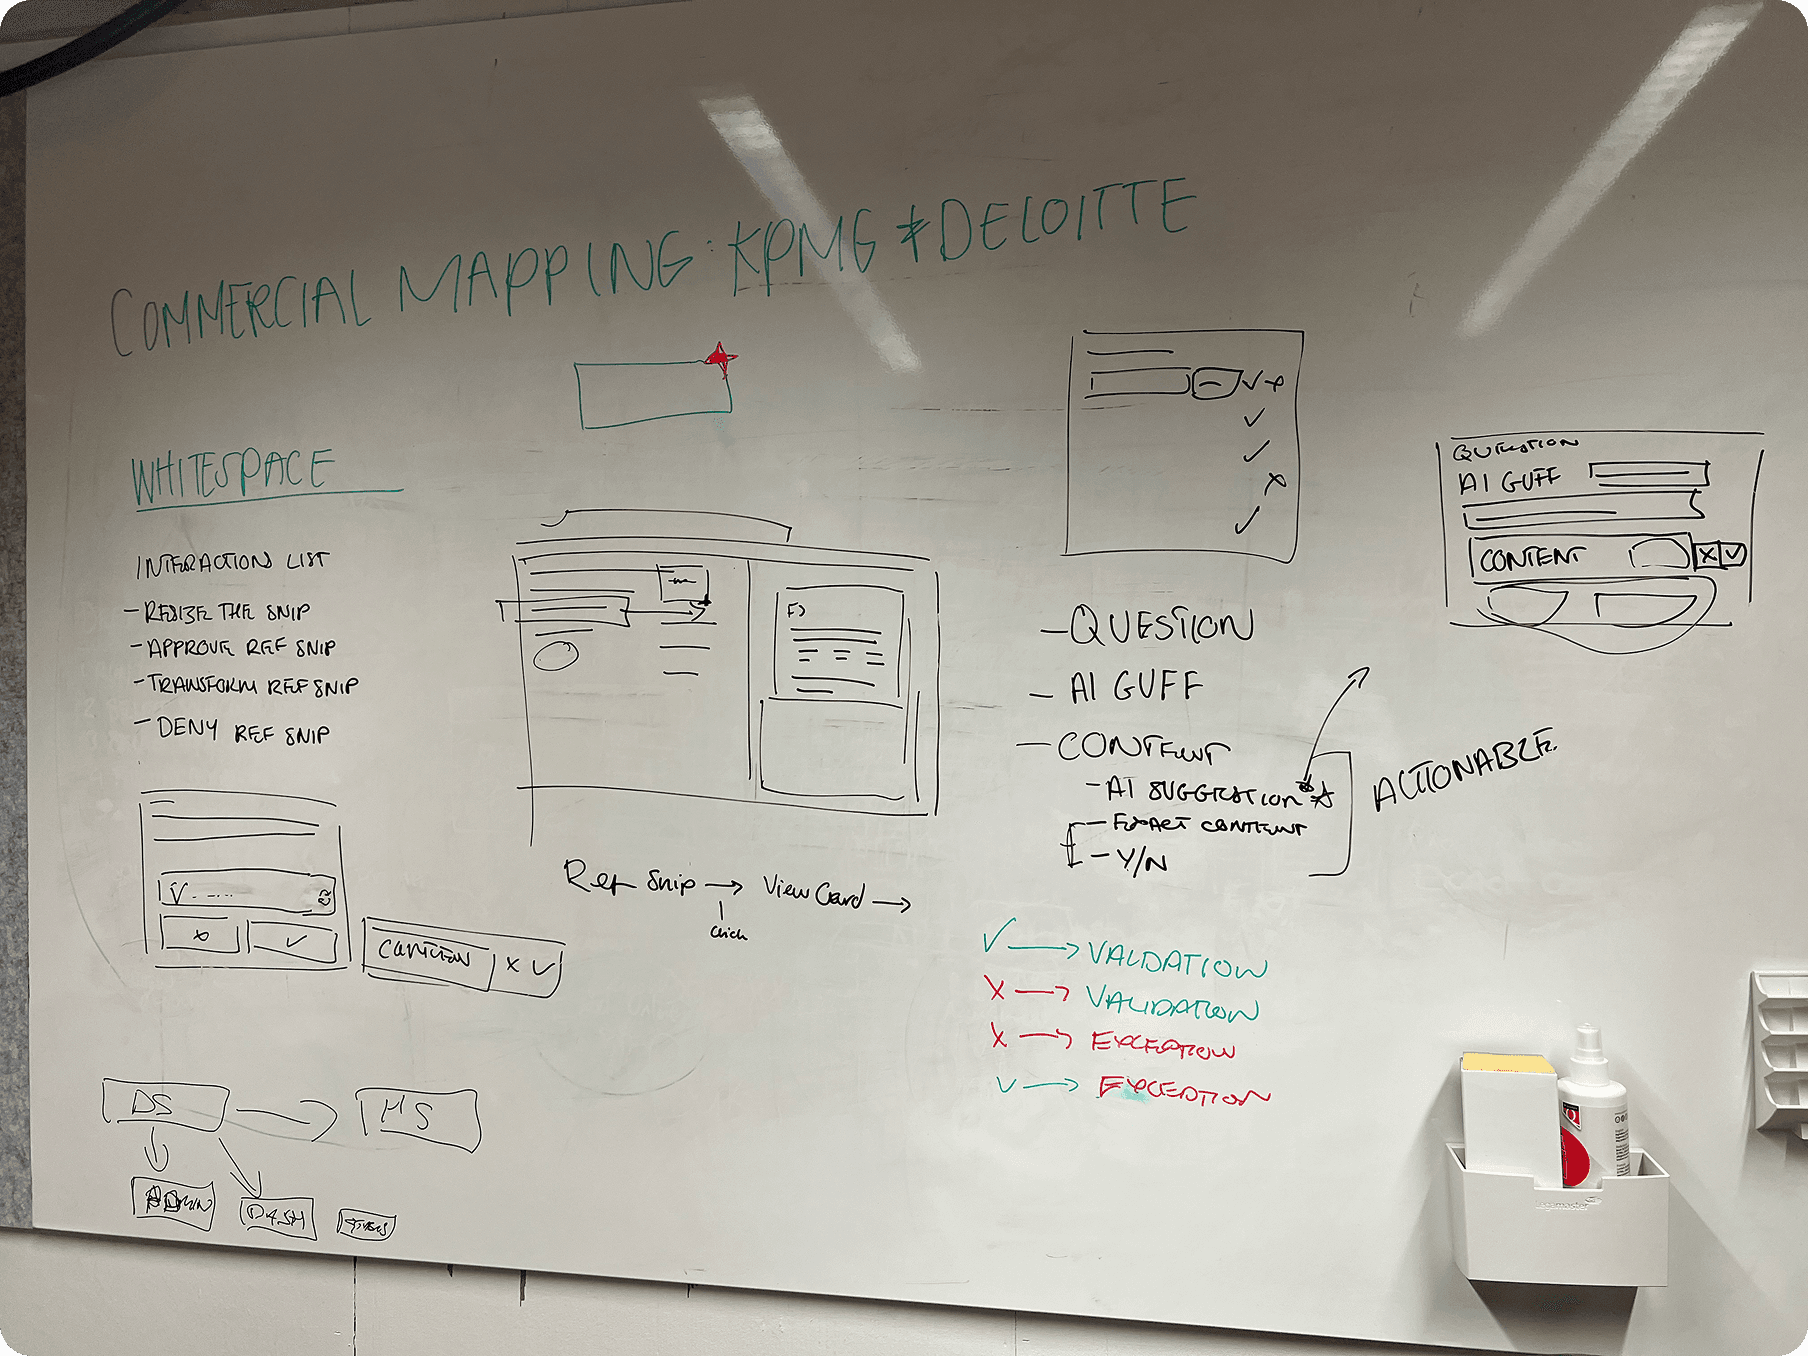 COMMERCIAL MAPPING: KPMG & DELOITTE
WHITESPACE
INTERACTION LIST
- RESIZE THE SNIP
- APPROVE REF SNIP
- TRANSFORM REF SNIP
- DENY REF SNIP
X ✓
X ✓
Ref Snip → View Card →
Click
DS → HS
ADMIN
DASH
✓ X
✓
✓
X
✓
QUESTION
AI GUFF
CONTENT X ✓
- QUESTION
- AI GUFF
- CONTENT
- AI SUGGESTION
- EXACT CONTENT
- Y/N
ACTIONABLE
✓ → VALIDATION
X → VALIDATION
X → EXCEPTION
✓ → EXCEPTION
legamaster